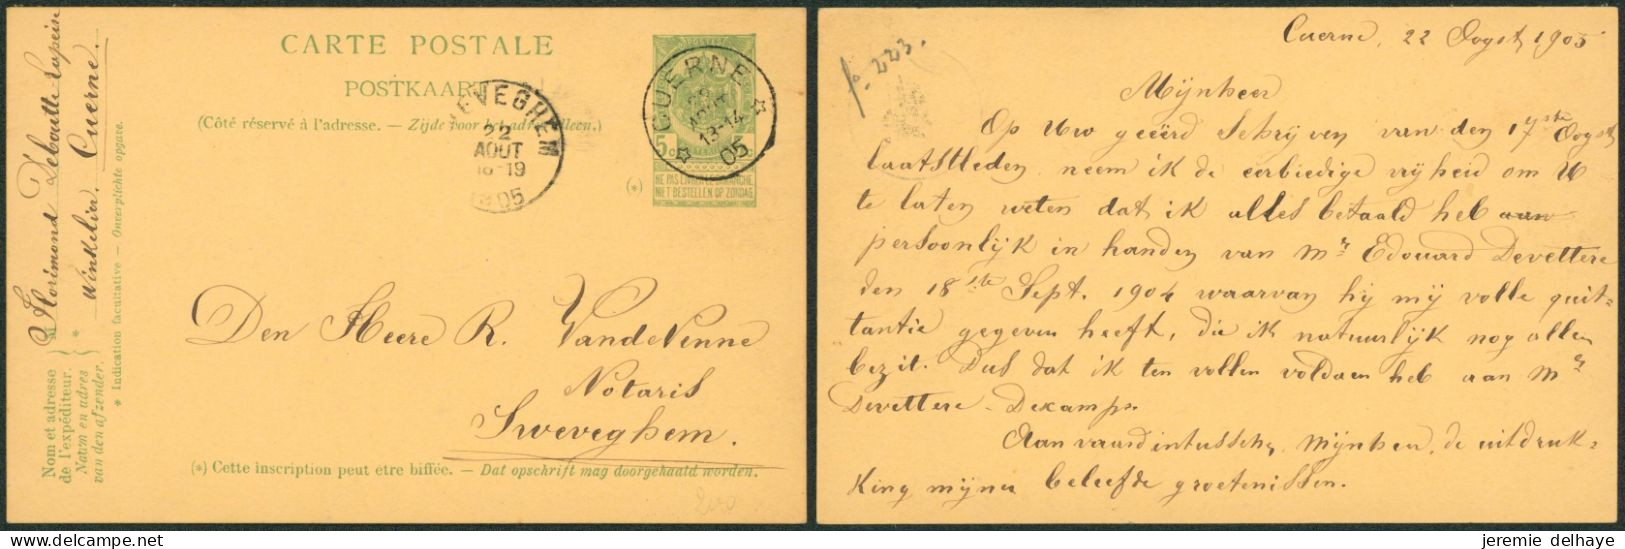 CARTE POSTALE
POSTKAART
(Côté réservé à l'adresse. — Zijde voor het adres alleen.)
CUERNE
22
AOUT
13-14
05
EVEGHEM
22
AOUT
18-19
05
5c
NE PAS LIVRER LE DIMANCHE
NIET BESTELLEN OP ZONDAG
(*)
Florimond Deboutte-Lapeir
Winkelier. Cuerne.
Nom et adresse
de l'expéditeur.
Naam en adres
van den afzender.
*
* Indication facultative — Onverplichte opgave.
Den Heere R. VandeVenne
Notaris
Sweveghem.
(*) Cette inscription peut être biffée. — Dat opschrift mag doorgehaald worden.
223.
Cuerne, 22 Oogst 1905
Mijnheer
Op Uw geëerd schrijven van den 17ste Oogst
laatstleden neem ik de eerbiedige vrijheid om U
te laten weten dat ik alles betaald heb aan
persoonlijk in handen van Mr Edouard Devettere
den 18ste Sept. 1904 waarvan hij mij volle quit-
tantie gegeven heeft, die ik natuurlijk nog allen
bezit. Dus dat ik ten vollen voldaen heb aan Mr
Devettere-Dekamps.
Aanvaard intusschen, Mijnheer, de uitdruk-
king mijner beleefde groetenissen.
jeremie delhaye